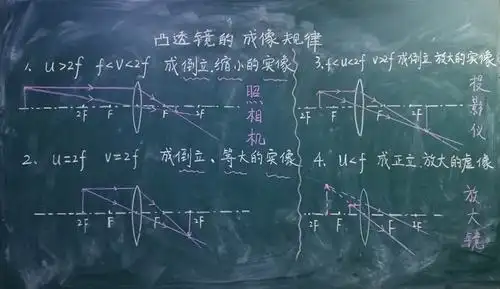 凸透镜的成像规律
1、u>2f f<v<2f 成倒立、缩小的实像
照相机
2F F F 2F
2、u=2f v=2f 成倒立、等大的实像
2F F F 2F
3、f<u<2f v>2f 成倒立放大的实像
投影仪
2F F F 2F
4、u<f 成正立放大的虚像
放大镜
2F F F 2F